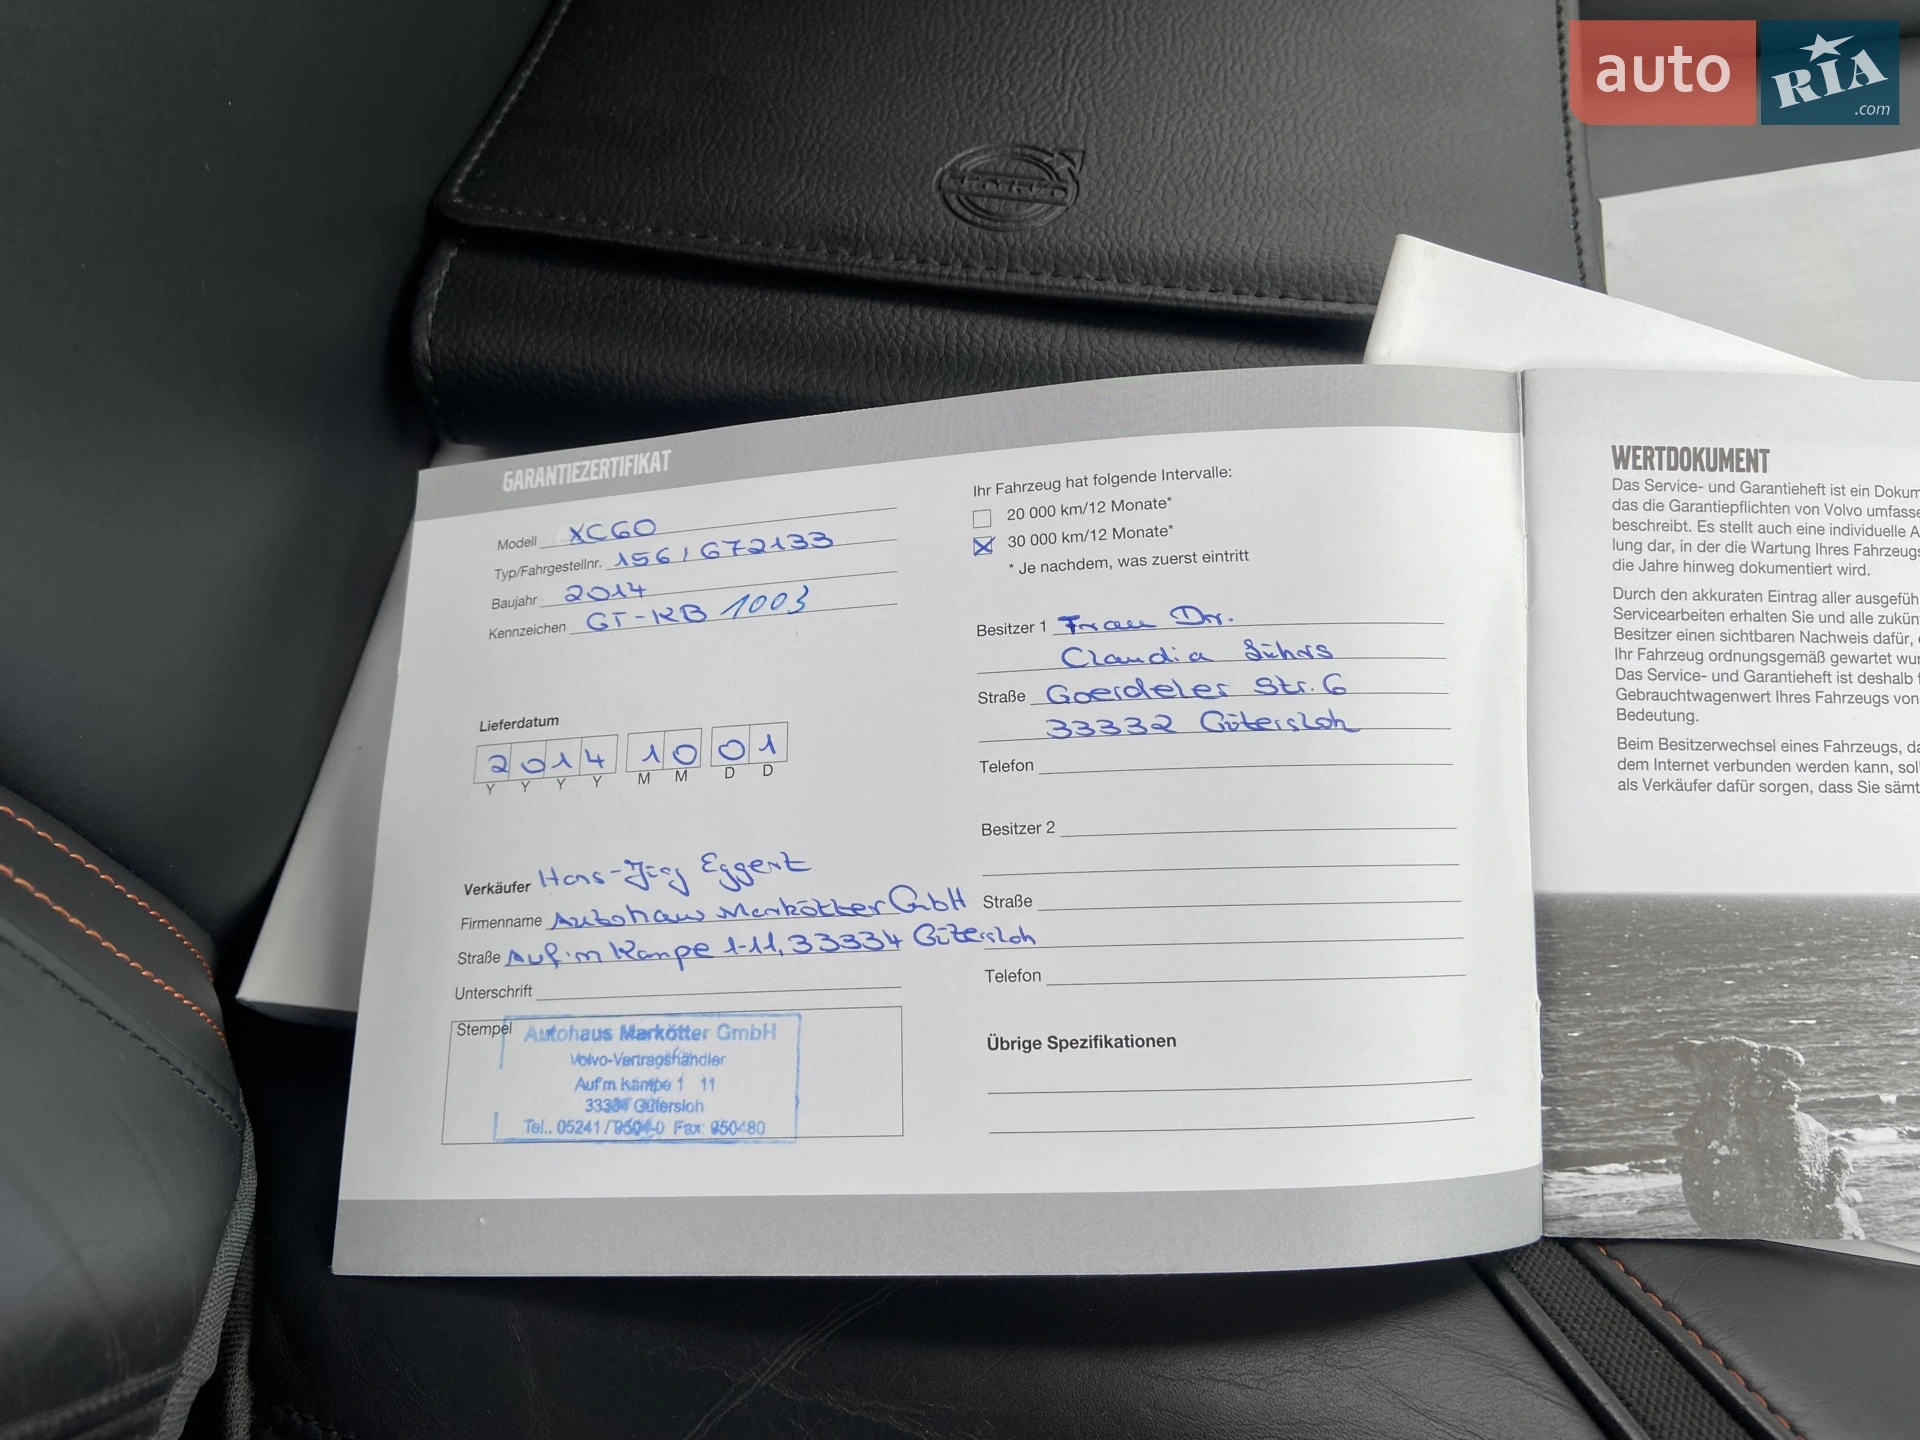 auto RIA .com
VOLVO
GARANTIEZERTIFIKAT
Modell XC60
Typ/Fahrgestellnr. 156 / 672133
Baujahr 2014
Kennzeichen GT-KB 1003
Lieferdatum
2014 10 01
Y Y Y Y M M D D
Verkäufer Hans-Jürg Eggert
Firmenname Autohaus Markötter GmbH
Straße Auf'm Kampe 1-11, 33334 Gütersloh
Unterschrift
Stempel
Autohaus Markötter GmbH
Volvo-Vertragshändler
Auf'm Kampe 1 11
33334 Gütersloh
Tel.. 05241 / 9504-0 Fax: 950480
Ihr Fahrzeug hat folgende Intervalle:
20 000 km/12 Monate*
30 000 km/12 Monate*
* Je nachdem, was zuerst eintritt
Besitzer 1 Frau Dr.
Claudia Lührs
Straße Goerdeler Str. 6
33332 Gütersloh
Telefon
Besitzer 2
Straße
Telefon
Übrige Spezifikationen
WERTDOKUMENT
Das Service- und Garantieheft ist ein Dokum
das die Garantiepflichten von Volvo umfasse
beschreibt. Es stellt auch eine individuelle A
lung dar, in der die Wartung Ihres Fahrzeugs
die Jahre hinweg dokumentiert wird.
Durch den akkuraten Eintrag aller ausgefüh
Servicearbeiten erhalten Sie und alle zukün
Besitzer einen sichtbaren Nachweis dafür,
Ihr Fahrzeug ordnungsgemäß gewartet wu
Das Service- und Garantieheft ist deshalb f
Gebrauchtwagenwert Ihres Fahrzeugs von
Bedeutung.
Beim Besitzerwechsel eines Fahrzeugs, da
dem Internet verbunden werden kann, sol
als Verkäufer dafür sorgen, dass Sie sämt